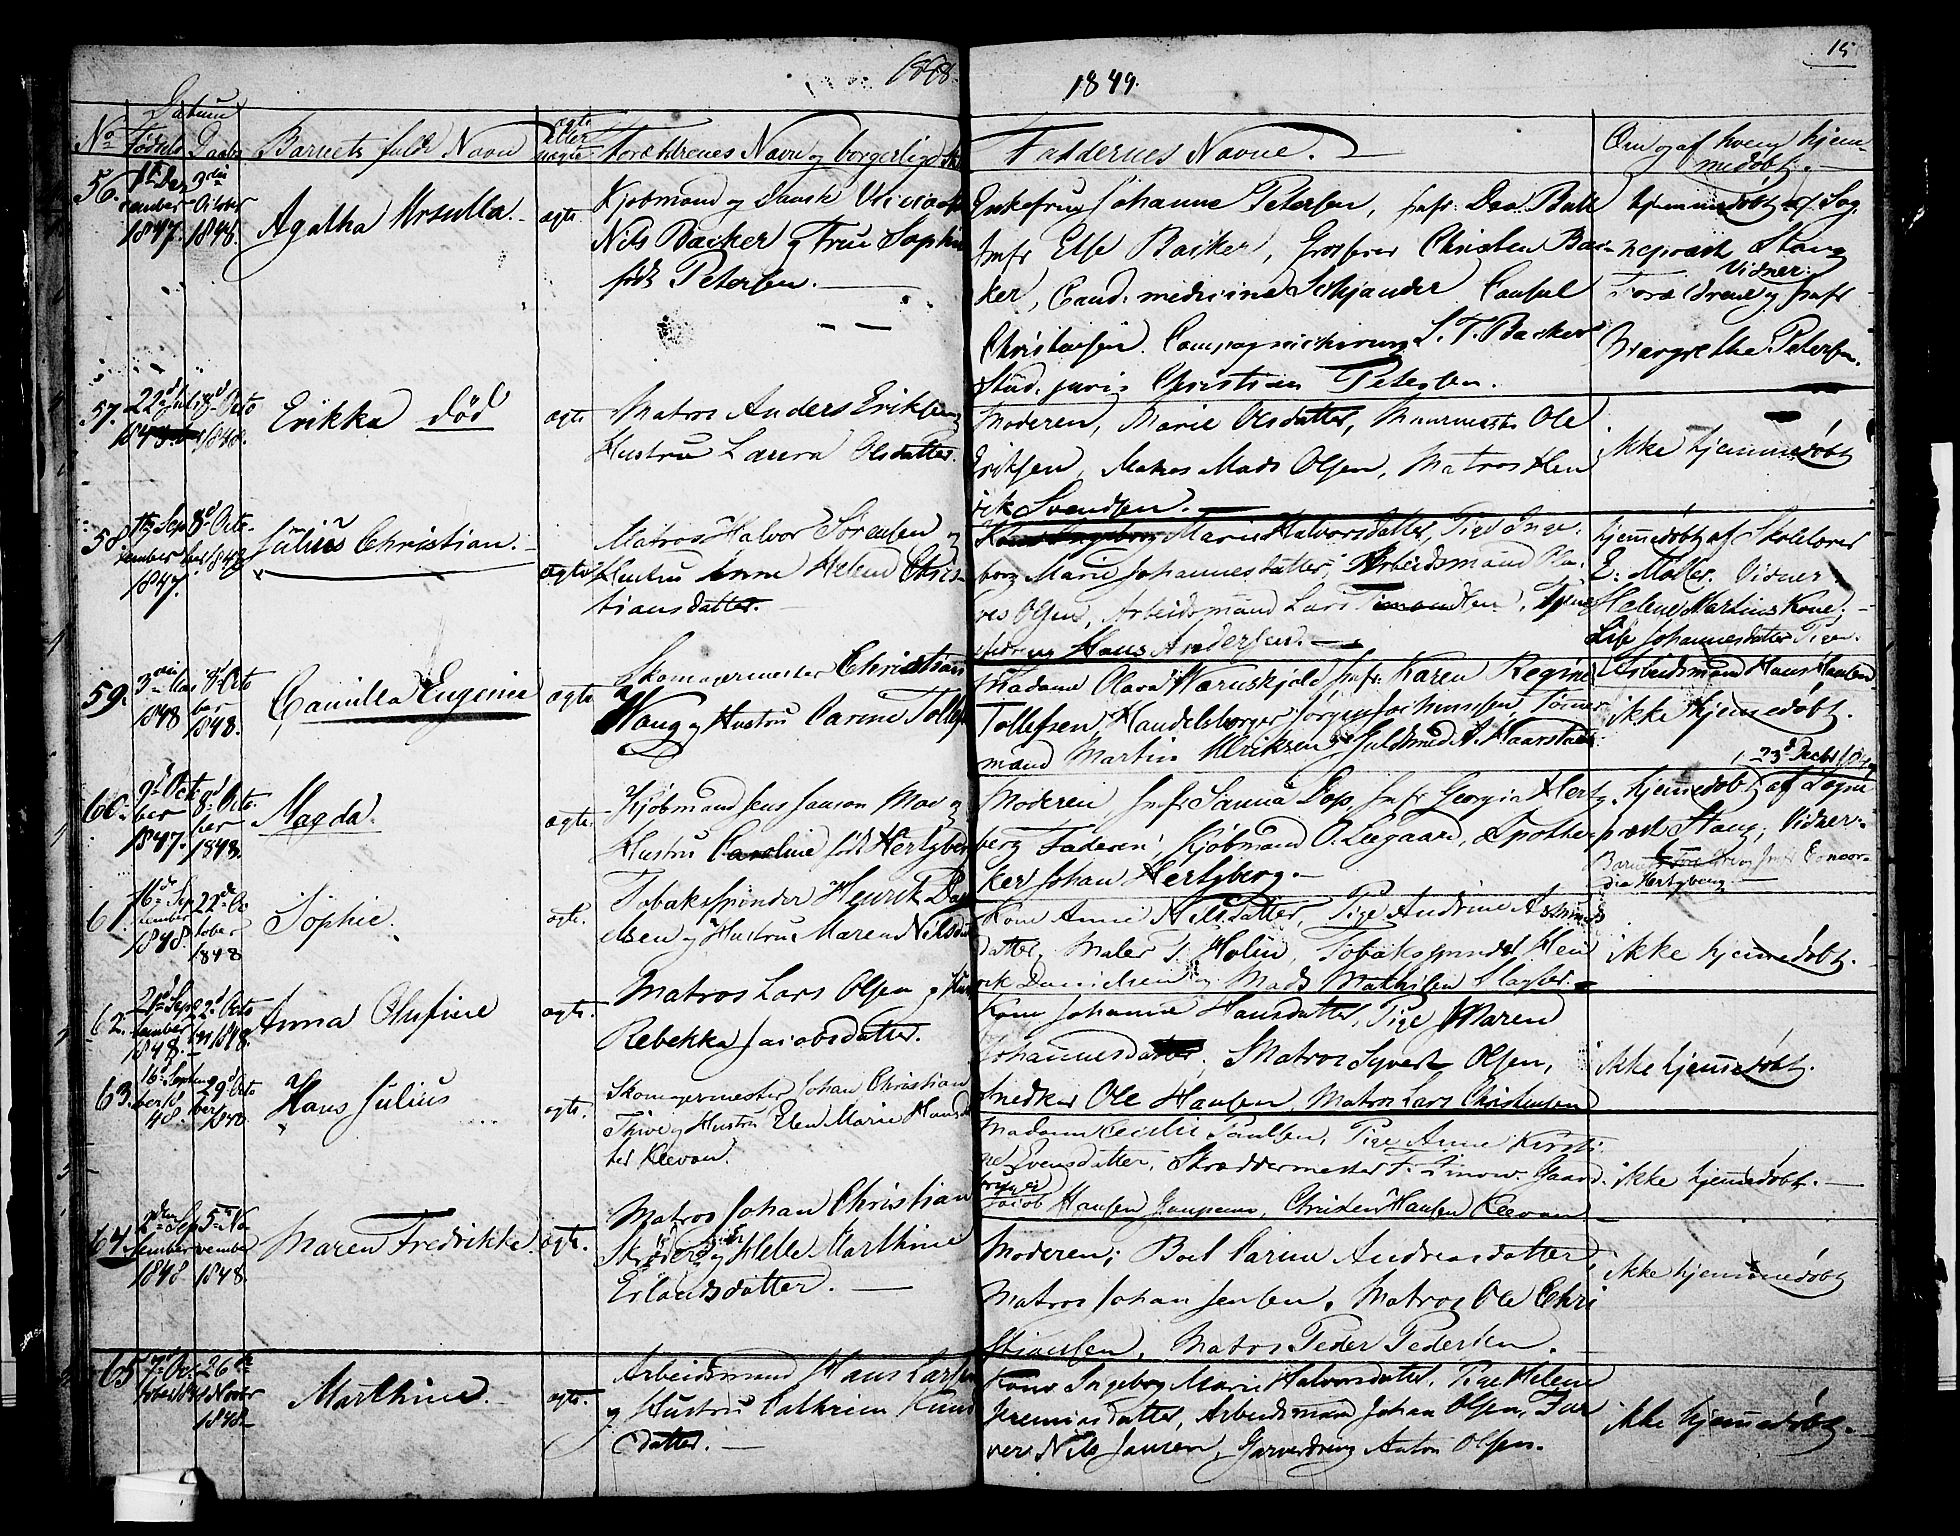 1848.
1849.
15
Datum
No Fødsels Daabs Barnets fulde Navn ægte eller uægte Forældrenes Navn og borgerlige
Faddernes Navne.
Om og af hvem hjem-
medøbt.
56. 1ste December 1847. 3die October 1848. Agatha Ursulla. ægte
Kjøbmand og Dansk Viceconsul
Nils Backer og Frue Sophie
født Petersen.
Enkefrue Johanne Petersen, Jmfr. Dea Ball
Jmfr Else Backer, Grosserer Christen Bac-
ker, Cand. medicinæ Schjander Consul
Christensen. Compagnichirurg S. T. Backer
Stud. juris Christian Petersen.
hjemmedøbt af Sog-
nepræst Stang
Vidner:
Forældrene og Jmfr
Margrethe Petersen.
57. 22d Juli 1848 8d Octo 1848. Erikka død ægte
Matros Anders Eriksen
Hustru Laura Olsdatter.
Moderen, Marie Olsdatter, Muurmester Ole
Eriksen, Matros Mads Olsen, Matros Hen
rik Svendsen.
ikke hjemmedøbt
58 September 1847. 8d October 1848 Julius Christian. ægte
Matros Halvor Sørensen og
Hustru Anne Helene Chris-
tiansdatter.
Marie Halvorsdatter, Pige Inge-
borg Marie Johannesdatter, Arbeidsmand
Olsen, Arbeidsmand Lars
Hans Andersen.
hjemmedøbt af Skolelærer
E. Møller. Vidner:
Helene Martins Kone,
Lise Johannesdatter Pige.
Arbeidsmand Hans Hansen
59. 3die 1848 8d October 1848. Camilla Eugenie ægte
Skomagermester Christian
Waug og Hustru Carine Tollefs
Madame Olava Wærnskjold Jmfr. Karen Regine
Tollefsen Handelsborger Jørgen Jochumsen, Tømmer
mand Martin Henriksen, Guldsmed A. Haarstad
ikke hjemmedøbt.
60. 9d October 1847. 8d October 1848. Magda. ægte.
Kjøbmand Jens Jansen Moe og
Hustru Caroline født Hertzberg
Moderen Jmfr Sanna Dop, Jmfr Georgia Hertz-
berg Faderen, Kjøbmand O. Leegaard, Apothe-
ker Johan Hertzberg.
hjemmedøbt af Sogne
præst Stang, Vidner.
Barnets Forældre Jmfr Concor-
dia Hertzberg
61. 16d September 1848. 22d October 1848 Sophie. ægte.
Tobaksspinder Henrik Da
elsen og Hustru Maren Nilsdat
Kone Anne Nilsdatter, Pige Andrine Asmunds
datter, Maler J. Holm, Tobaksspinder Hen
rik Danielsen og Mads Mathisen Slagter.
ikke hjemmedøbt.
62. 21d September 1848. 22d October 1848. Anna Olufine ægte.
Matros Lars Olsen og Hust
Rebekka Jacobsdatter.
Kone Johanne Hansdatter, Pige Maren
Johannesdatter, Matros Syvert Olsen,
Snedker Ole Hansen, Matros Lars Christensen
ikke hjemmedøbt.
63. 16d September 1848. 29d October 1848 Hans Julius ægte.
Skomagermester Johan Christian
Thive og Hustru Elen Marie Hansdat
ter Keevan.
Madam Cecilie Paulsen, Pige Anne Kirsti
ne Evensdatter, Skræddermester F. Simow. Gaard-
bruger
Jacob Hansen Christen Hansen Keevan
ikke hjemmedøbt.
64. 2den September 1848 5te November 1848. Maren Fredrikke. ægte.
Matros Johan Christian
Skrøder og Helle Marthine
Erlandsdatter.
Moderen; Boel Carine Andreasdatter,
Matros Johan Jensen, Matros Ole Chri
stiansen, Matros Peder Pedersen.
ikke hjemmedøbt
65 7de October 26de November 1848 Marthine. ægte.
Arbeidsmand Hans Larsen
og Hustru Cathrine Knud
datter.
Kone Ingeborg Marie Halvorsdatter, Pige Helene
Jeremiasdatter, Arbeidsmand Johan Olsen, Far
ver Nils Jansen, Garverdreng Anton Olsen.
ikke hjemmedøbt.